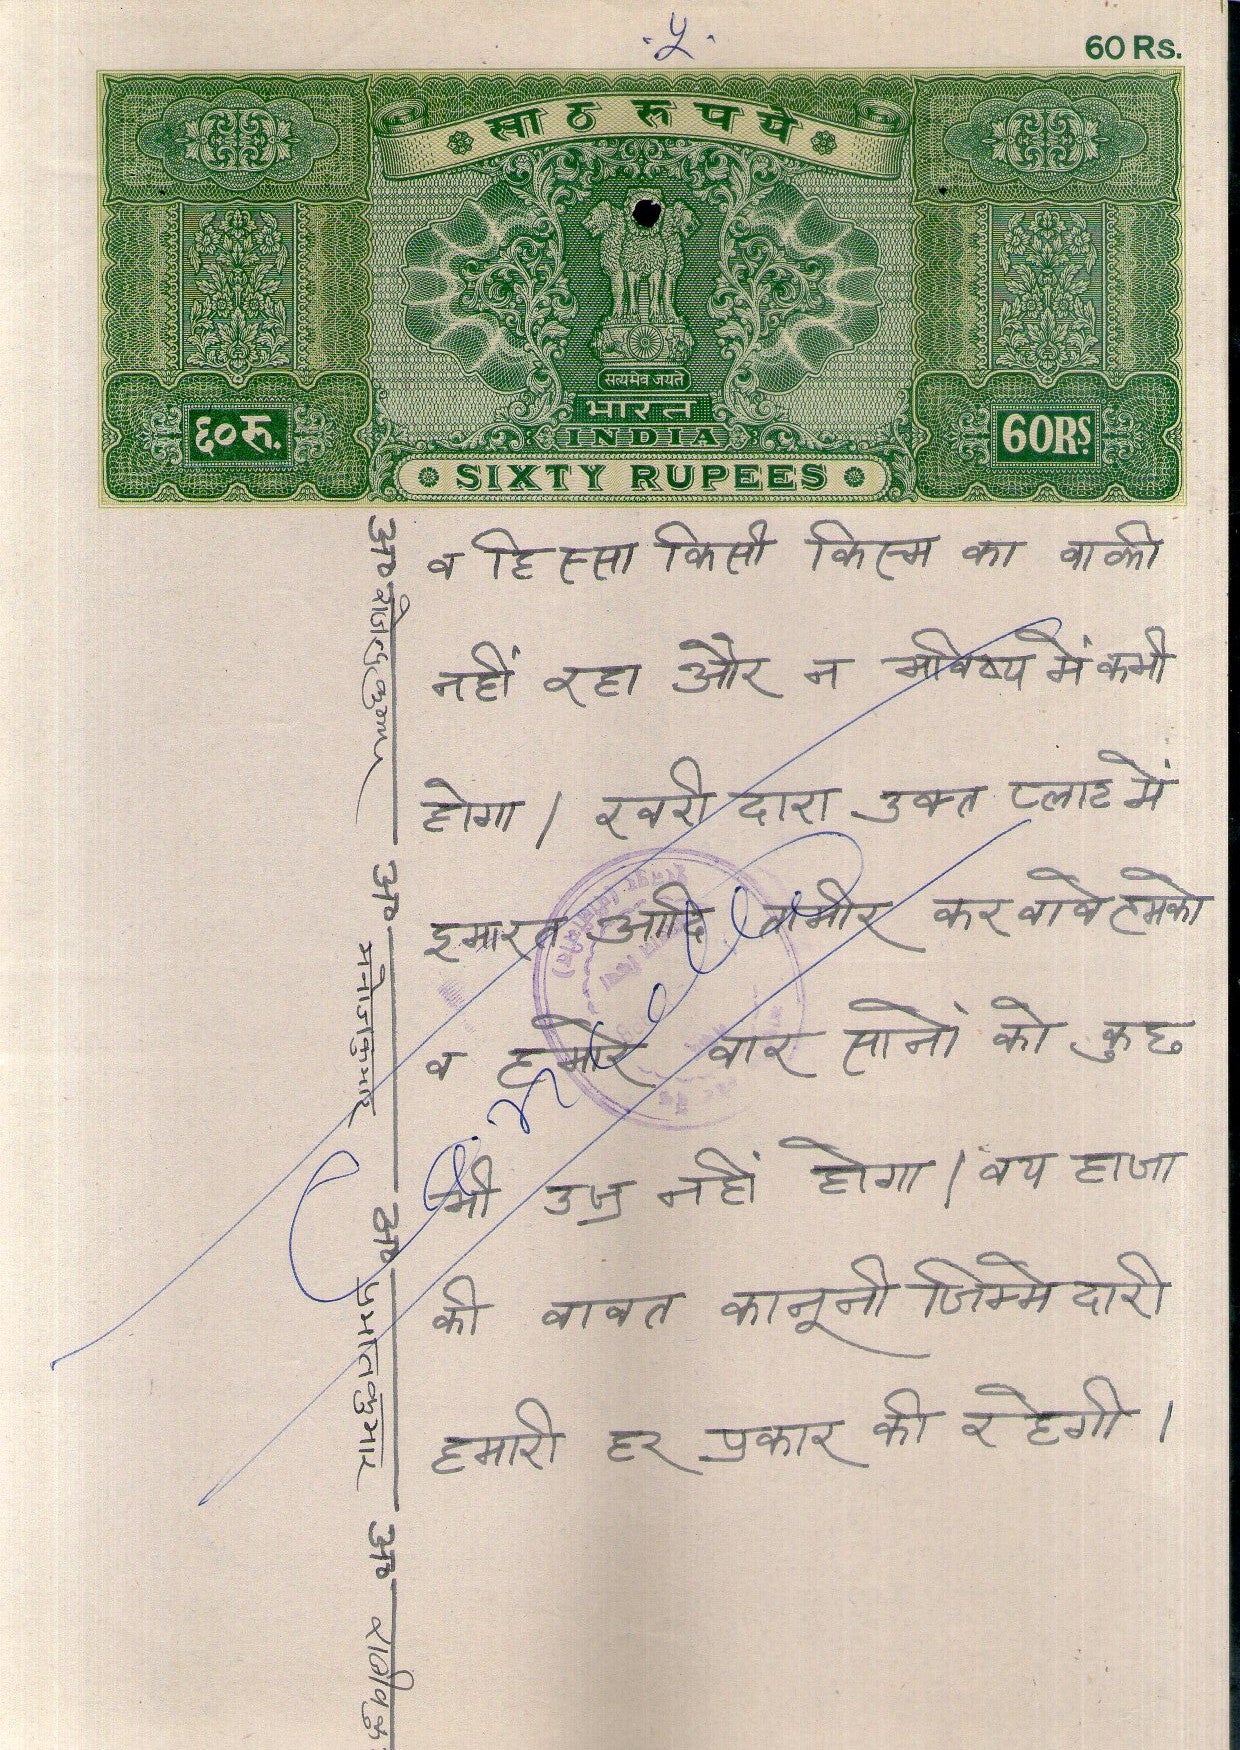 ५
60 Rs.
साठ रूपये
सत्यमेव जयते
भारत
INDIA
६०रू.
60RS.
SIXTY RUPEES
व हिस्सा किसी किस्म का वाकी
नहीं रहा और न भविष्य में कभी
होगा । खरीदारा उक्त प्लाट में
इमारत आदि तामीर करवावे हमको
व हमारे वारसानों को कुछ
भी उज्र नहीं होगा । वय हाजा
की वावत कानूनी जिम्मेदारी
हमारी हर प्रकार की रहेगी ।
अ०
अ० मनोजकुमार
अ० प्रभातिकुमार
अ०